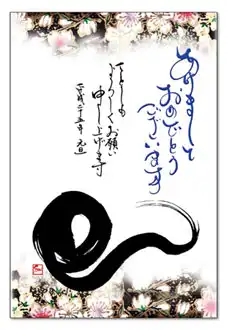 あけまして
おめでとう
ございます
ことしも
よろしくお願い
申し上げます
平成二十五年 元旦